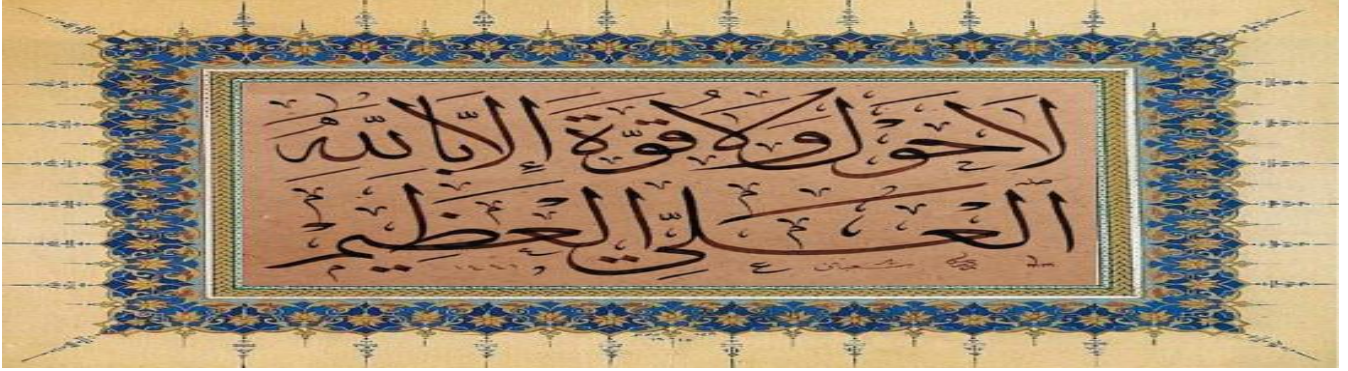 لَا حَوْلَ وَلَا قُوَّةَ إِلَّا بِاللّٰهِ
الْعَلِيِّ الْعَظِيمِ